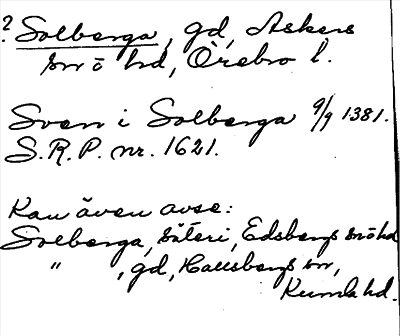 ? Solberga, gd, Askers
sn o hd, Örebro l.
Sven i Solberga 9/9 1381.
S.R.P. nr. 1621.
Kan även avse:
Solberga, säteri, Edsbergs sn o hd
" , gd, Hallsbergs sn,
Kumla hd.